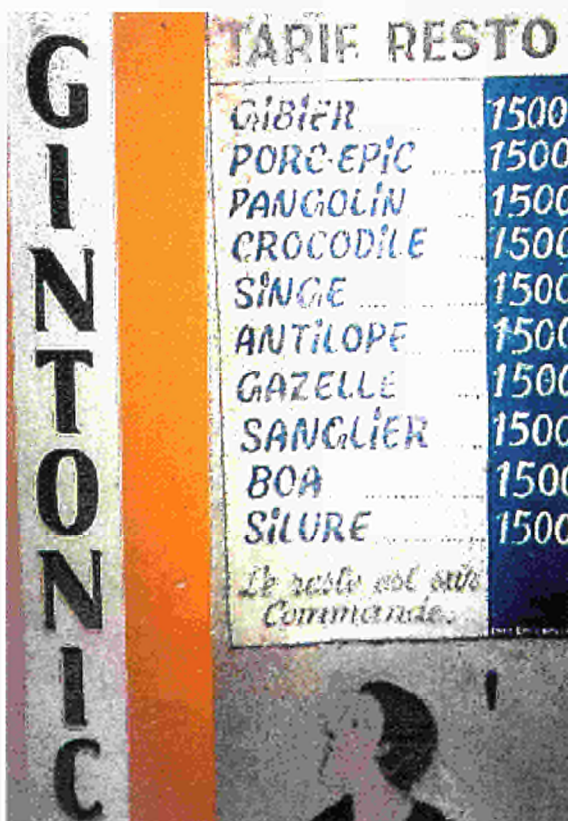 GINTONIC
TARIF RESTO
GiBiER 1500
PORC-EPiC 1500
PANGOLiN 1500
CROCODiLE 1500
SiNGE 1500
ANTiLOPE 1500
GAZELLE 1500
SANGLiER 1500
BOA 1500
SiLURE 1500
Le reste est sur
Commande.